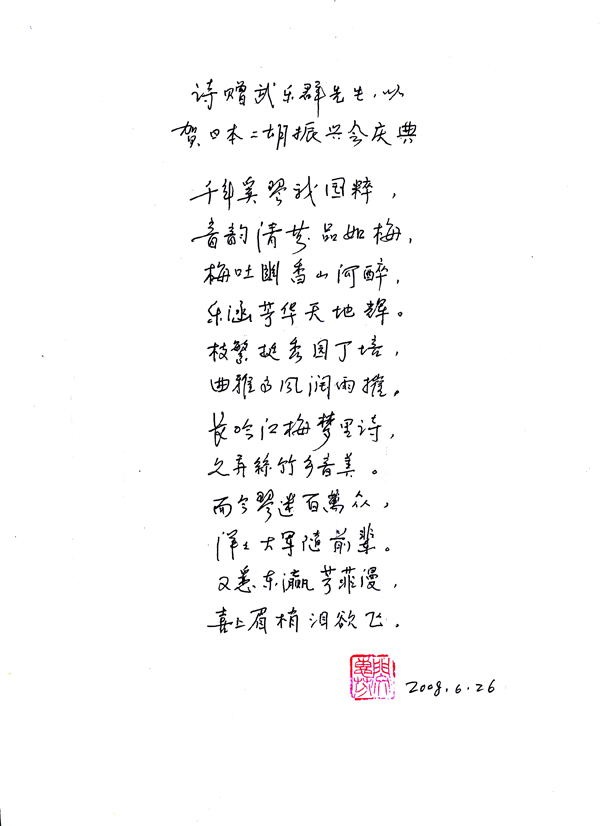 诗赠武乐群先生，以
贺日本二胡振兴会庆典
千年奚琴我国粹，
音韵清芬品如梅，
梅吐幽香山河醉，
乐涵芳华天地辉。
枝繁挺秀园丁培，
曲雅 风润雨摧。
长吟江梅梦里诗，
久弄絲竹乡音美。
而今琴迷百萬众，
洋々大军随前辈。
又悉东瀛芳菲漫，
喜上眉梢泪欲飞。
2008.6.26